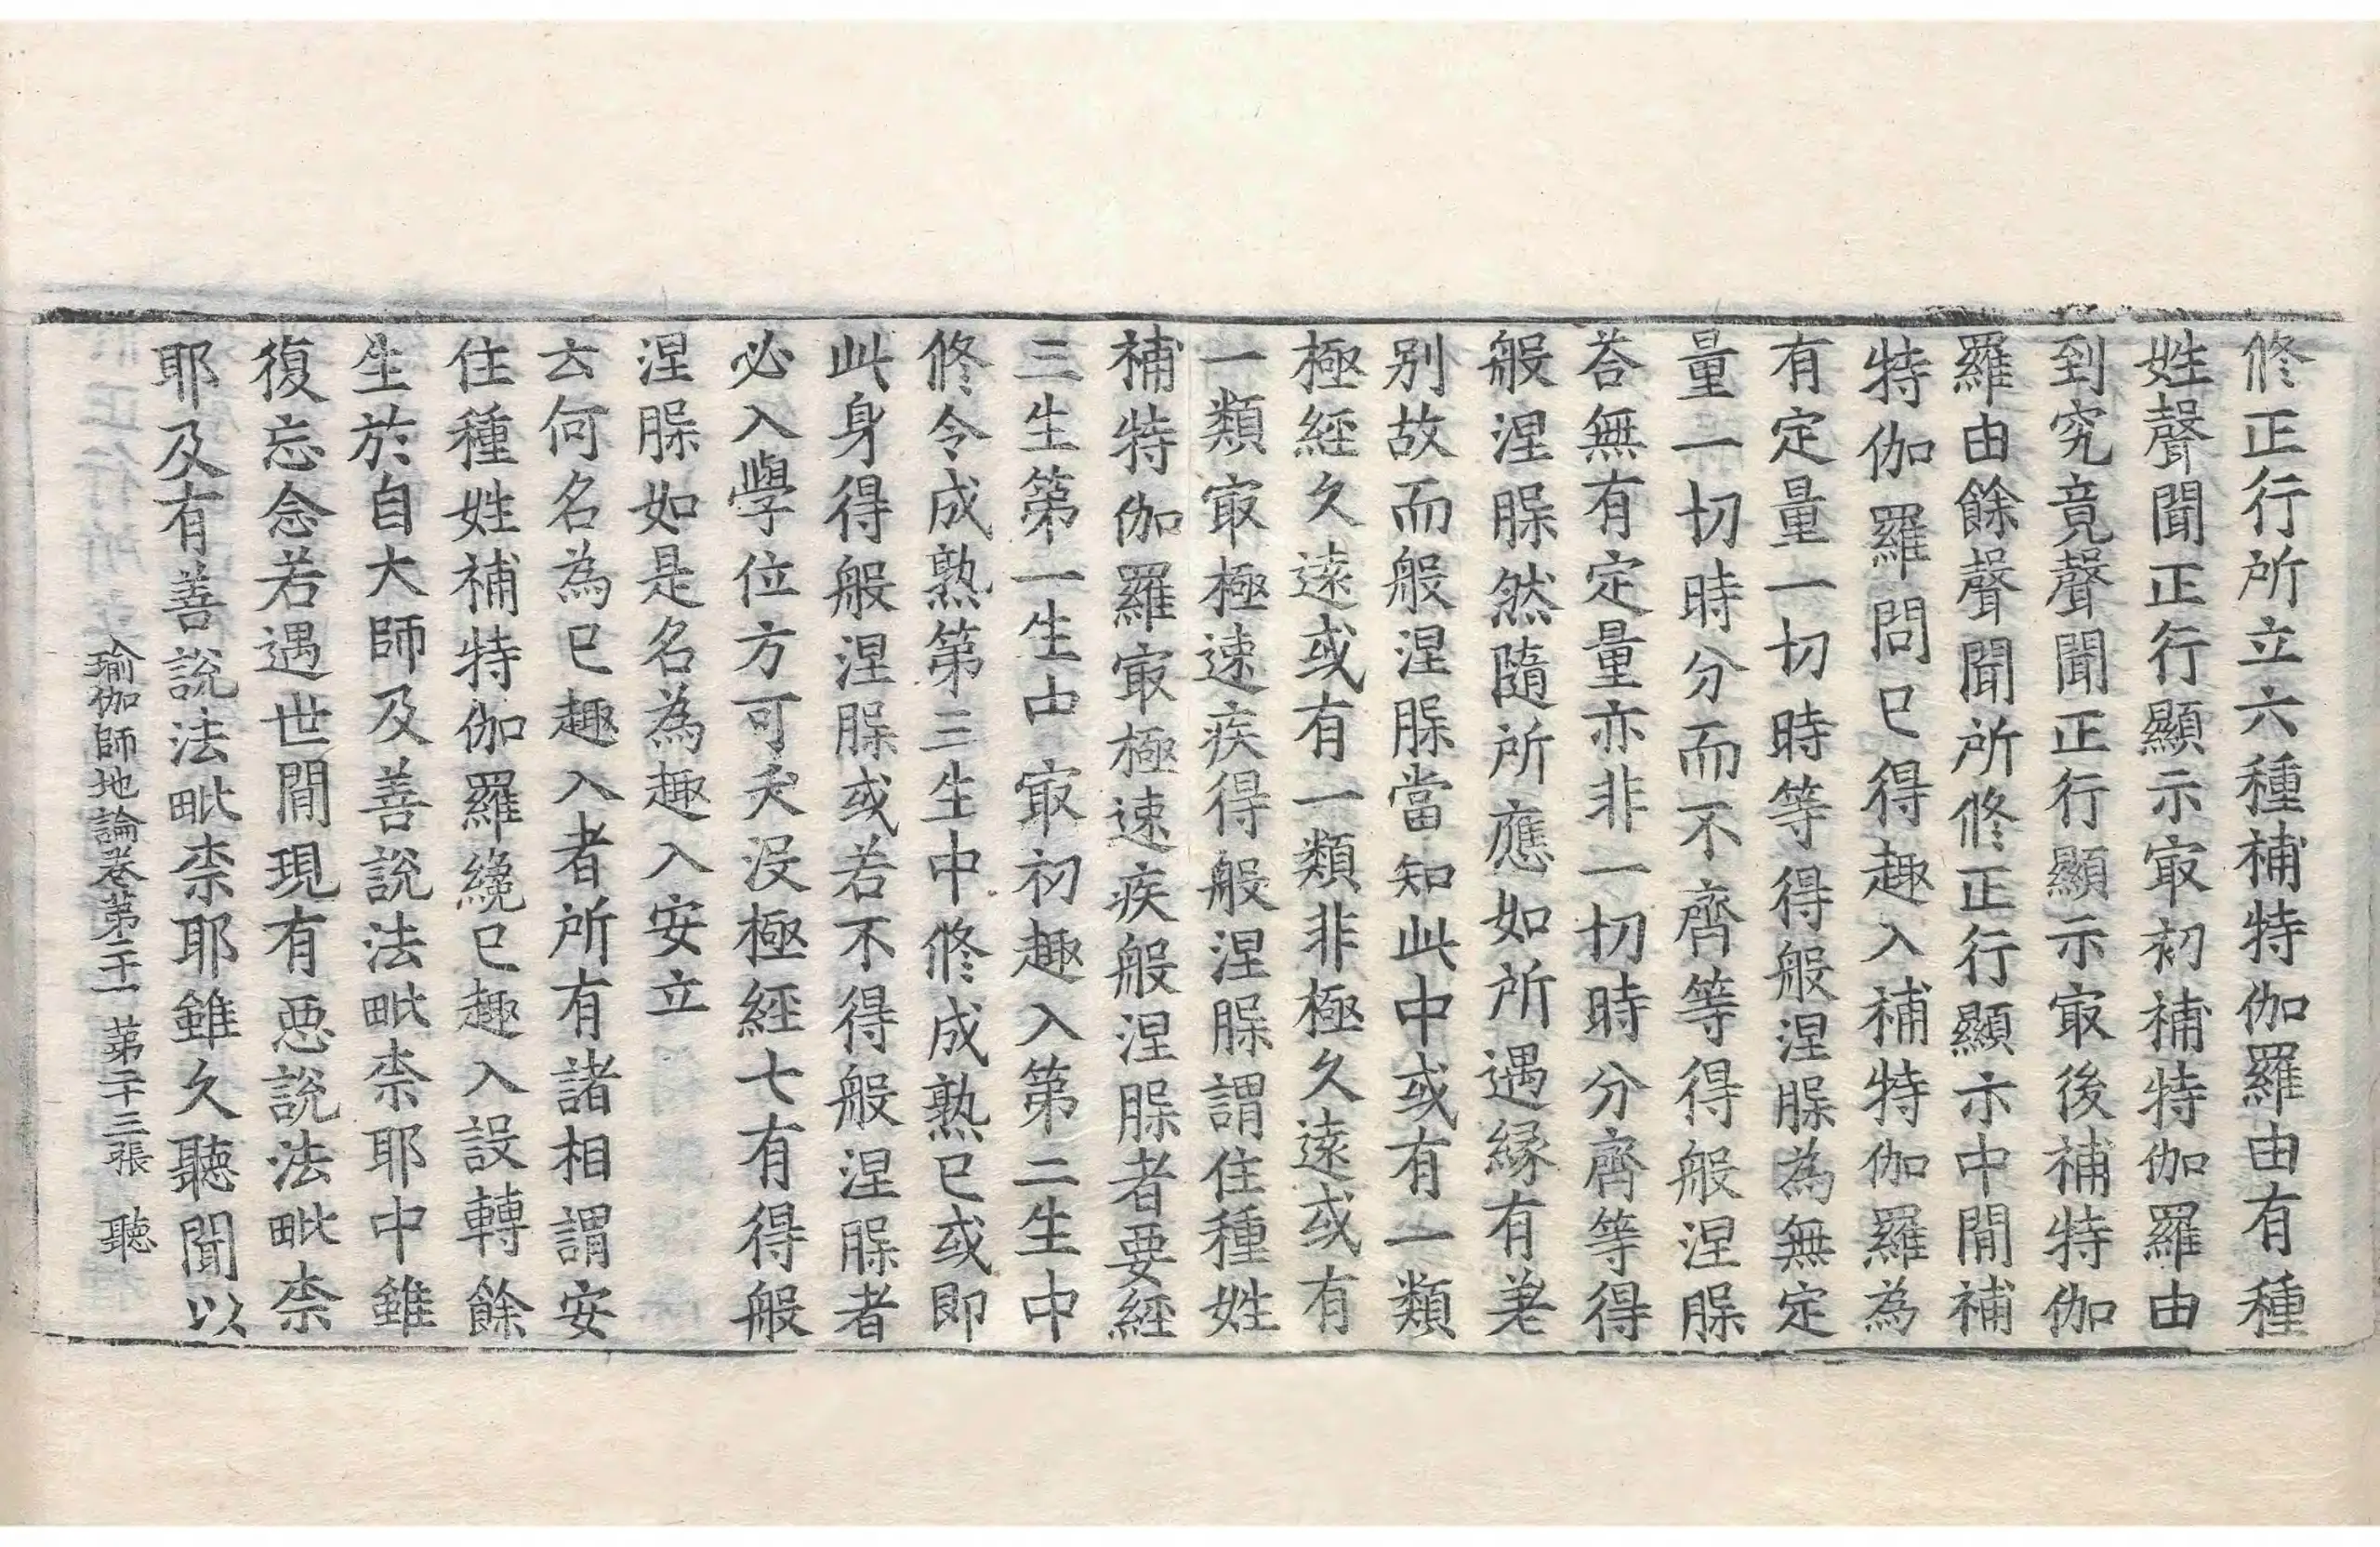 修正行所立六種補特伽羅由有種
姓聲聞正行顯示㝡初補特伽羅由
到究竟聲聞正行顯示㝡後補特伽
羅由餘聲聞所修正行顯示中間補
特伽羅問已得趣入補特伽羅為
有定量一切時等得般涅槃為無定
量一切時分而不齊等得般涅槃
荅無有定量亦非一切時分齊等得
般涅槃然隨所應如所遇緣有差
别故而般涅槃當知此中或有一類
極經久遠或有一類非極久遠或有
一類㝡極速疾得般涅槃謂住種姓
補特伽羅㝡極速疾般涅槃者要經
三生第一生中㝡初趣入第二生中
修令成熟第三生中修成熟已或即
此身得般涅槃或若不得般涅槃者
必入學位方可夭沒極經七有得般
涅槃如是名為趣入安立
云何名為已趣入者所有諸相謂安
住種姓補特伽羅纔已趣入設轉餘
生於自大師及善說法毗柰耶中雖
復忘念若遇世間現有惡說法毗柰
耶及有善說法毗柰耶雖久聽聞以
瑜伽師地論卷第二十一 第二十三張 聽